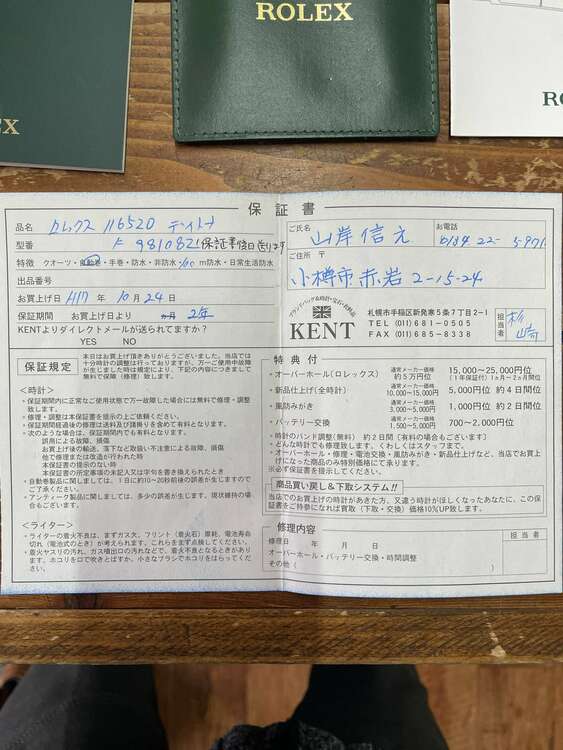 ROLEX
EX
RO
保証書
品名 ロレックス 116520 デイトナ
型番 F 981082 保証書後日送ります
特徴 クオーツ・自動巻・手巻・防水・非防水・100m防水・日常生活防水
出品番号
お買上げ日 H17年 10月24日
保証期間 お買上げ日より 2年
KENTよりダイレクトメールが送られてますか?
YES NO
ご氏名 山岸信え
お電話
0134 22- 5-971
ご住所 〒
小樽市赤岩 2-15-24
ブランドバッグ&時計・宝石・貴金属
KENT
札幌市手稲区新発寒5条7丁目2-1
TEL (011) 681-0505
FAX (011) 685-8338
担当者 杉崎
保証規定
本日はお買上げ頂きありがとうございました。当店では
十分時計の調整は行っておりますが、万一ご使用中故障
が生じました時は規定により、下記の内容につきまして
無料で保障(修理)致します。
<時計>
・保証期間内に正常なご使用状態で万一故障した場合には無料で修理・調整
致します。
・修理・調整は本保証書を提示の上ご依頼ください。
・保証期間経過後の修理は送料及び諸掛りを含めて有料となります。
・次のような場合は、保証期間内でも有料となります。
誤用による故障、損傷
お買上げ後の輸送、落下など取扱い不注意による故障、損傷
他で修理または改造が行われた時
本保証書の提示のない時
本保証書の所定事項の未記入又は字句を書き換えられたとき
・自動巻製品に関しましては、1日に約10~20秒前後の誤差が生じますので
ご了承ください。
・アンティーク製品に関しましては、多少の誤差が生じます。現状維持の場
合もございます。
<ライター>
・ライターの着火不良は、まずガス欠、フリント(発火石)摩耗、電池寿命
切れ(電池式のとき)が考えられます。これらをまず点検してください。
・着火ヤスリの汚れ、ガス噴出口の汚れなどで、着火不良となることがあり
ます。ホコリを口で吹きとばすか、小さなブラシでホコリをはらってくださ
い。
特典付
・オーバーホール(ロレックス) 通常メーカー価格 約5万円位 15,000~25,000円位 (1年保証付) 1ヵ月~2ヵ月間位
・新品仕上げ(全時計) 通常メーカー価格 10,000~15,000円 5,000円位 約4日間位
・風防みがき 通常メーカー価格 3,000~5,000円 1,000円位 約2日間位
・バッテリー交換 通常メーカー価格 1,000~1,500円 700~2,000円位
・時計のバンド調整(無料) 約2日間〔有料の場合もございます〕
・どんな時計でも修理致します。くわしくはスタッフまで。
・オーバーホール・修理・電池交換・風防みがき・新品仕上げなど、当店でお買上
げになった商品のみ特別価格にて承ります。
※必ず保証書を提示してください。
商品買い戻し&下取システム!!
当店でのお買上げの時計があきた方、又違う時計がほしくなったあなたに、この保
証書をご持参になれば買取(下取・交換)価格10%UP致します。
修理内容
担当者
修理日 年 月 日
オーバーホール・バッテリー交換・時間調整
その他( )